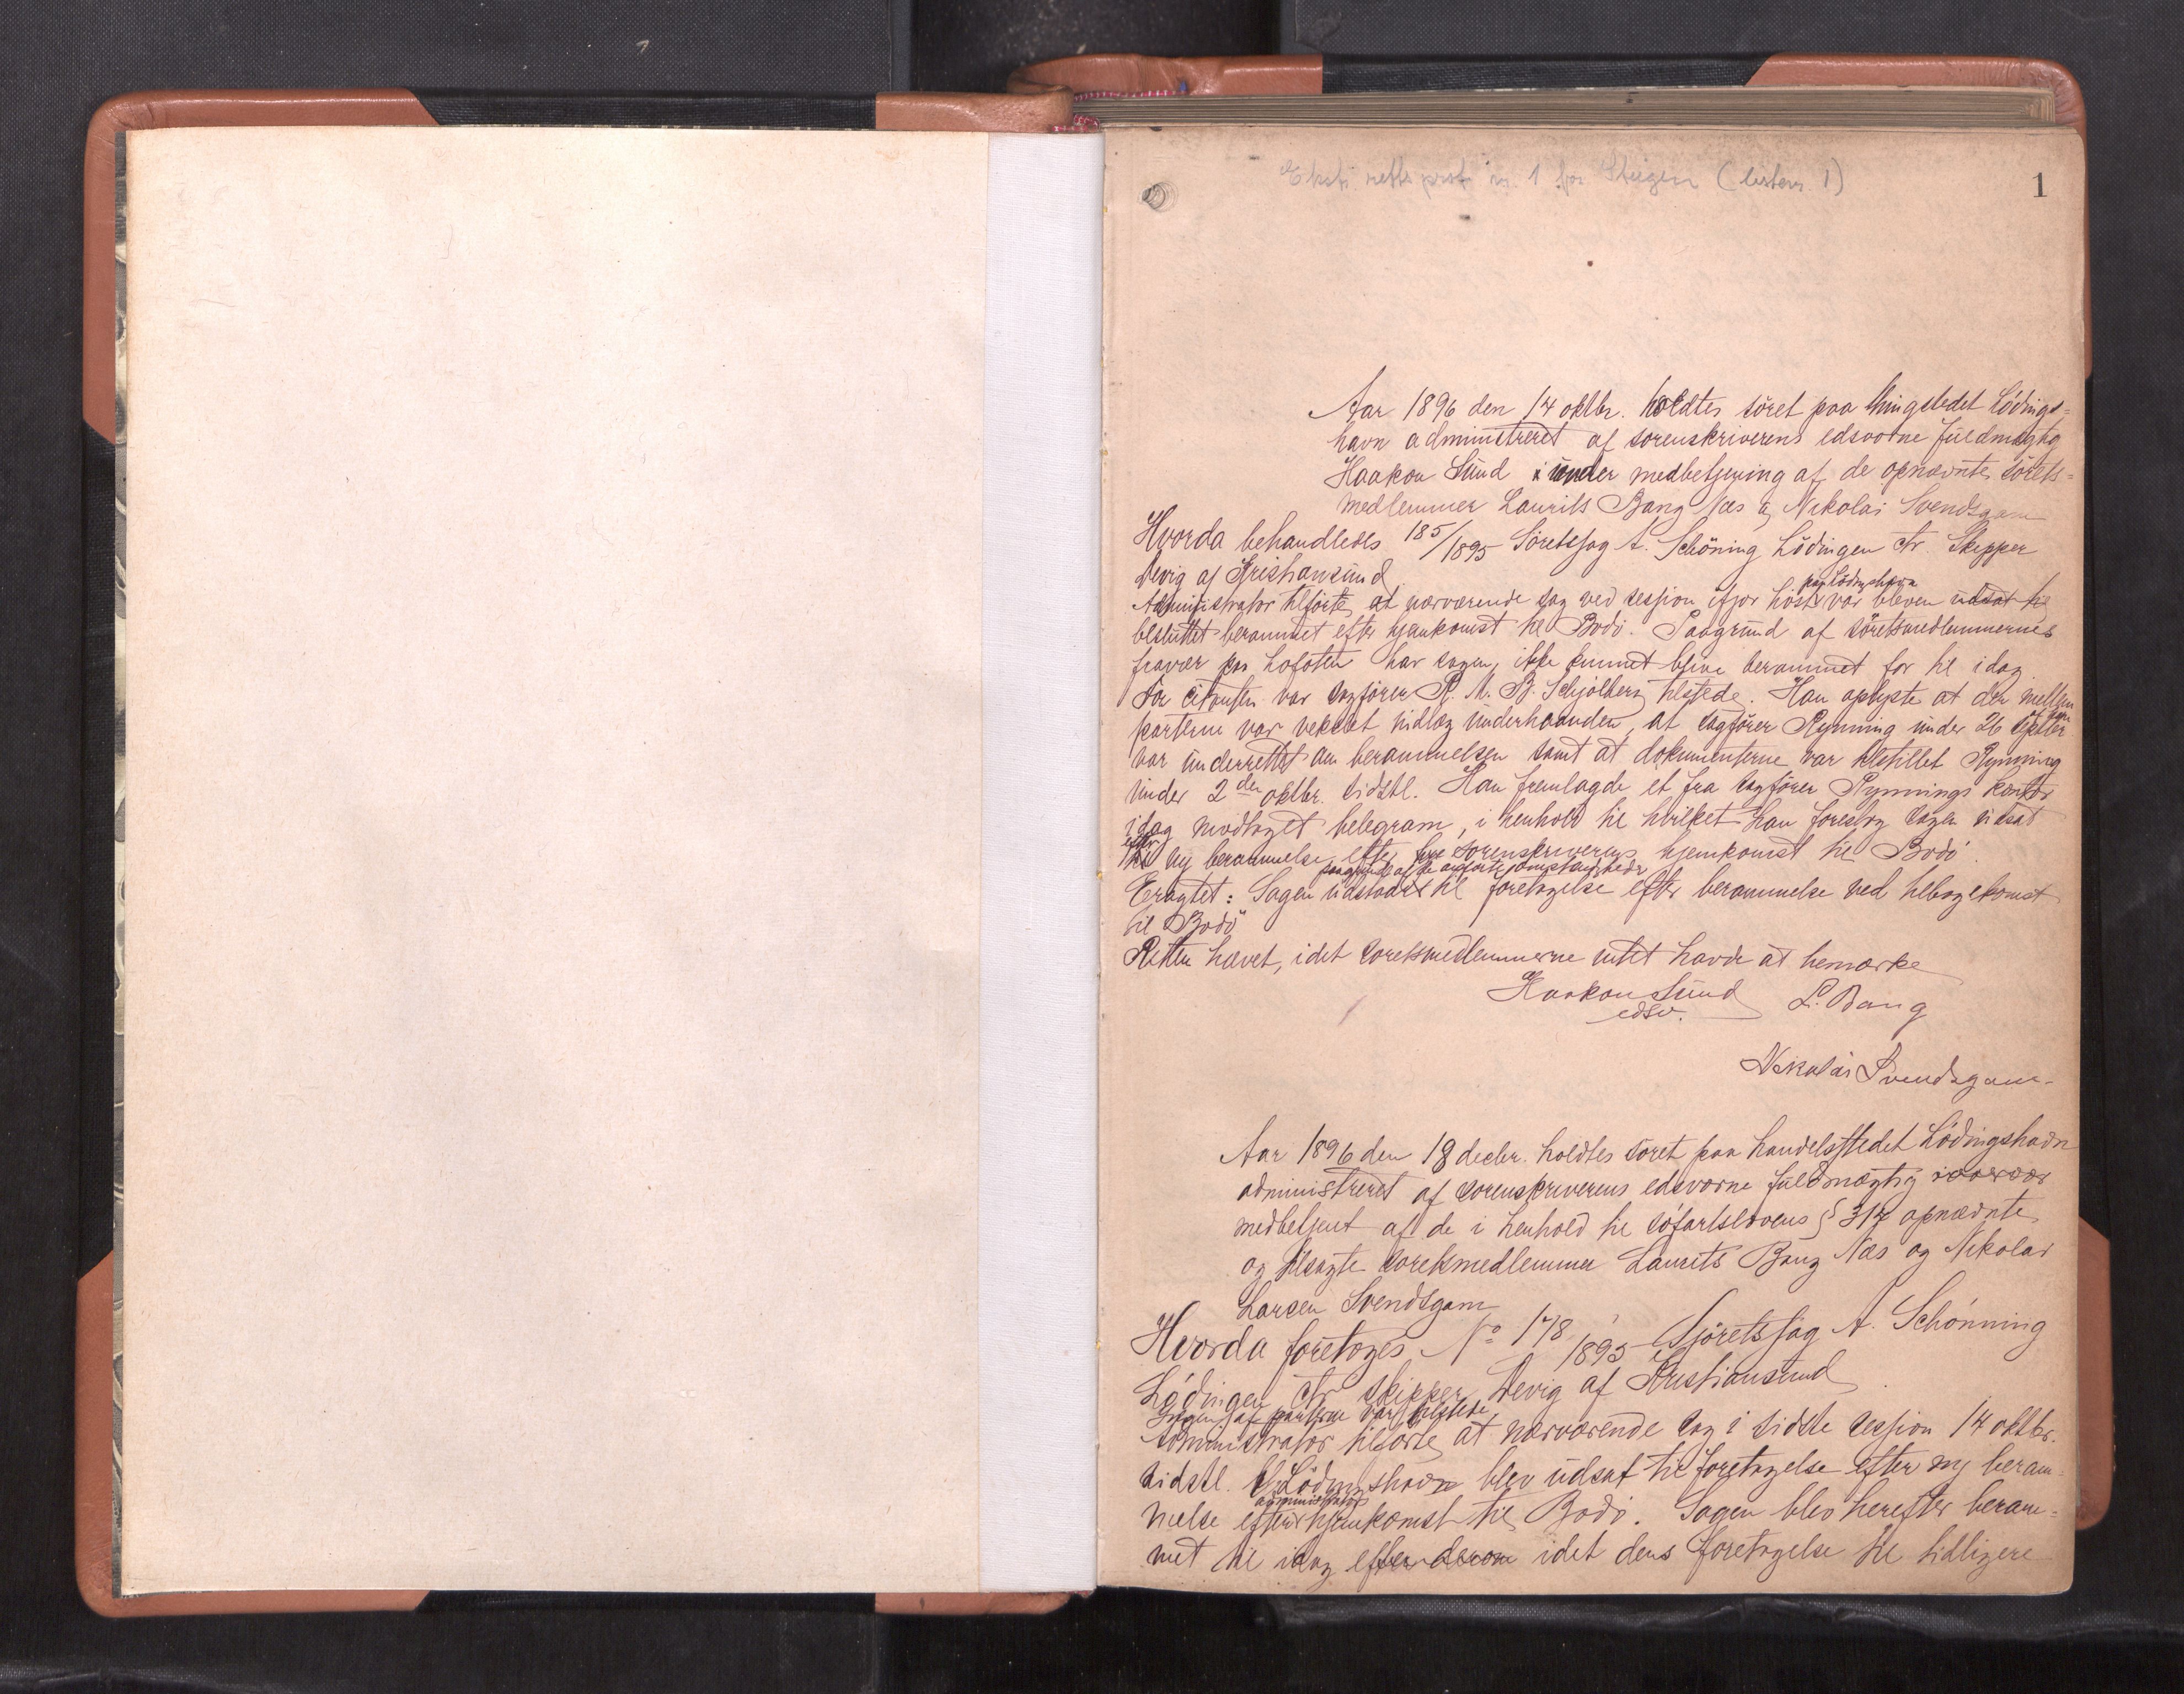 Ekstr. rettsprot. nr. 1 for Steigen (listenr. 1)
1
Aar 1896 den 14 oktbr. holdtes söret paa thingstedet Lödings=
havn administreret af sorenskriverens edsvorne fuldmægtig
Haakon Sund under medbetjening af de opnævnte sörets=
medlemmer Laurits Bang Næs og Nikolai Svendsgam
Hvorda behandledes 185/1895 Söretssag A. Schöning Lödingen ctr. Skipper
Devig af Kristiansund
Administrator tilförte, at nærværende sag ved session ifjor höst paa Lödingshavn var bleven udsat til
besluttet berammet efter hjemkomst til Bodö. Paagrund af söretsmedlemmernes
fravær paa Lofoten har sagen ikke kunnet blive berammet för til idag.
For citanten var sagförer R. M. B. Schjölberg tilstede. Han oplyste at der mellem
parterne var vekslet indlæg underhaanden, at sagförer Rynning under 26 septbr.
var underrettet om berammelsen samt at dokumenterne var tilstillet Rynning
under 2den oktbr. sidstl. Han fremlagde et fra sagförer Rynnings kontor
idag modtaget telegram, i henhold til hvilket han foreslog sagen udsat
efter ny berammelse efter sorenskriverens hjemkomst til Bodö.
paagrund af de anförte omstændigheder
Eragtet: Sagen udsættes til foretagelse efter berammelse ved tilbagekomst
til Bodö
Retten hævet, idet söretsmedlemmerne intet havde at bemærke
Haakon Sund L. Bang
edsv.
Nikolai Svendsgam
Aar 1896 den 18 decbr. holdtes söret paa handelsstedet Lödingshavn
administreret af sorenskriverens edsvorne fuldmægtig
medbetjent af de i henhold til söfartslovens § 314 opnævnte
og tilsagte söretsmedlemmer Laurits Bang Næs og Nikolai
Larsen Svendsgam
Hvorda foretoges No 178/1895 Sjöretssag A. Schönning
Lödingen ctr. skipper Devig af Kristiansund
Ingen af parterne var tilstede
Administrator tilförte, at nærværende sag i sidste session 14 oktbr.
sidstl. Lödingshavn blev udsat til foretagelse efter ny beram=
melse efter administrators hjemkomst til Bodö. Sagen blev herefter beram=
met til idag idet dens foretagelse til tidligere